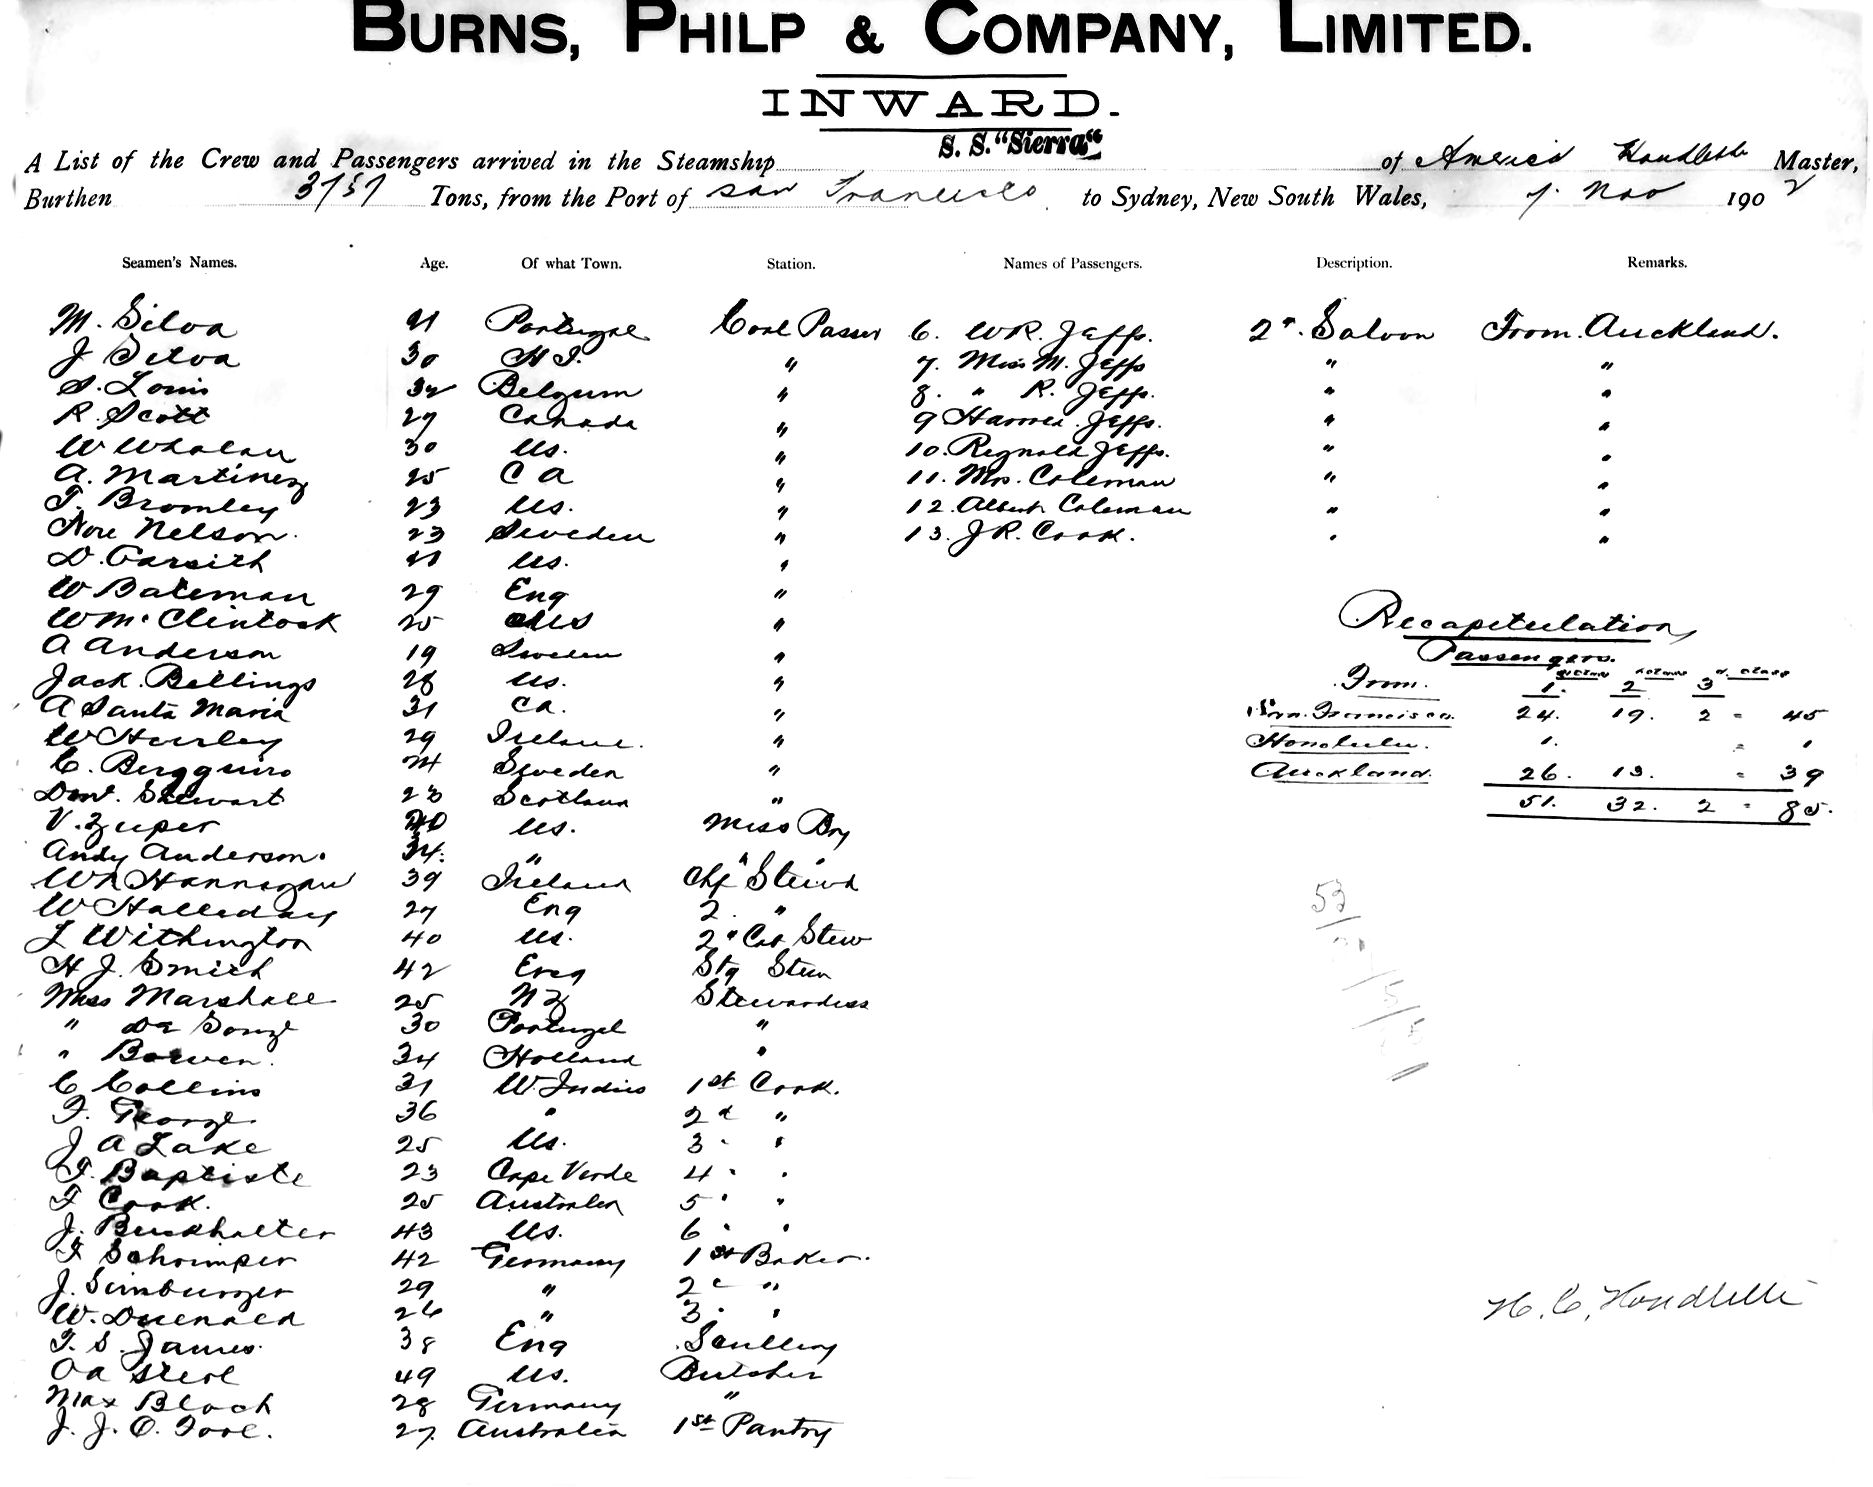 BURNS, PHILP & COMPANY, LIMITED.
INWARD.
A List of the Crew and Passengers arrived in the Steamship S. S. "Sierra" of America Houdlette Master,
Burthen 3757 Tons, from the Port of San Francisco to Sydney, New South Wales, 7. Nov 1902
Seamen's Names. Age. Of what Town. Station. Names of Passengers. Description. Remarks.
M. Silva 21 Portugal Coal Passer 6. W R. Jeffs. 2nd. Saloon From Auckland.
J Silva 30 H I. " 7. Miss M. Jeffs " "
S. Louis 32 Belgum " 8. " R. Jeffs. " "
R. Scott 29 Canada " 9 Jeffs. " "
W Whalan 30 Us. " 10. Reginald Jeffs. " "
A. Martinez 25 C A " 11. Mrs. Coleman " "
T. Bromley 23 Us. " 12. Albert Coleman " "
Nore Nelson. 23 Sweden " 13. J R. Cook. " "
D. Garsith 21 Us. "
W Bateman 29 Eng "
W Mc Clintock 25 US "
A Anderson 19 Sweden "
Jack Billings 28 Us. "
A Santa Maria 31 Ca. "
W Hurley 29 Ireland. "
C. 24 Sweden "
Dav. Stewart 23 Scotland "
V. Zuper 20 Us. Mess Boy
Andy Anderson. 34. " " "
Wm Hannagan 39 Ireland Chf Stewd
W Halleday 27 Eng 2. "
L Withington 40 Us. 2d Cab Stew
H J. Smith 42 Eng Stg Stew
Miss Marshall 25 N Z Stewardess
" De Souze 30 Portugal "
" Bowen. 34 Holland "
C Collins 31 W. Indies 1st Cook.
T. George. 36 " 2d "
J A Lake 25 Us. 3 " "
T. Baptiste 23 Cape Verde 4 " "
T Cook. 25 Australia 5 " "
J. Burkhalter 43 Us. 6 " "
F Schrimper 42 Germany 1st Baker.
J. Simburger 29 " 2d "
W. Duenald 26 " 3 " "
T. S. James. 38 Eng Scullery
49 Us. Butcher
Max Block 28 Germany "
J. J. O. Tool. 27. Australia 1st Pantry
Recapitulation
Passengers.
From. 1. 2 3 Class
San Francisco. 24. 19. 2 = 45
Honolulu. 1. = 1
Auckland. 26. 13. = 39
51. 32. 2 = 85.
53
H. C. Houdlette